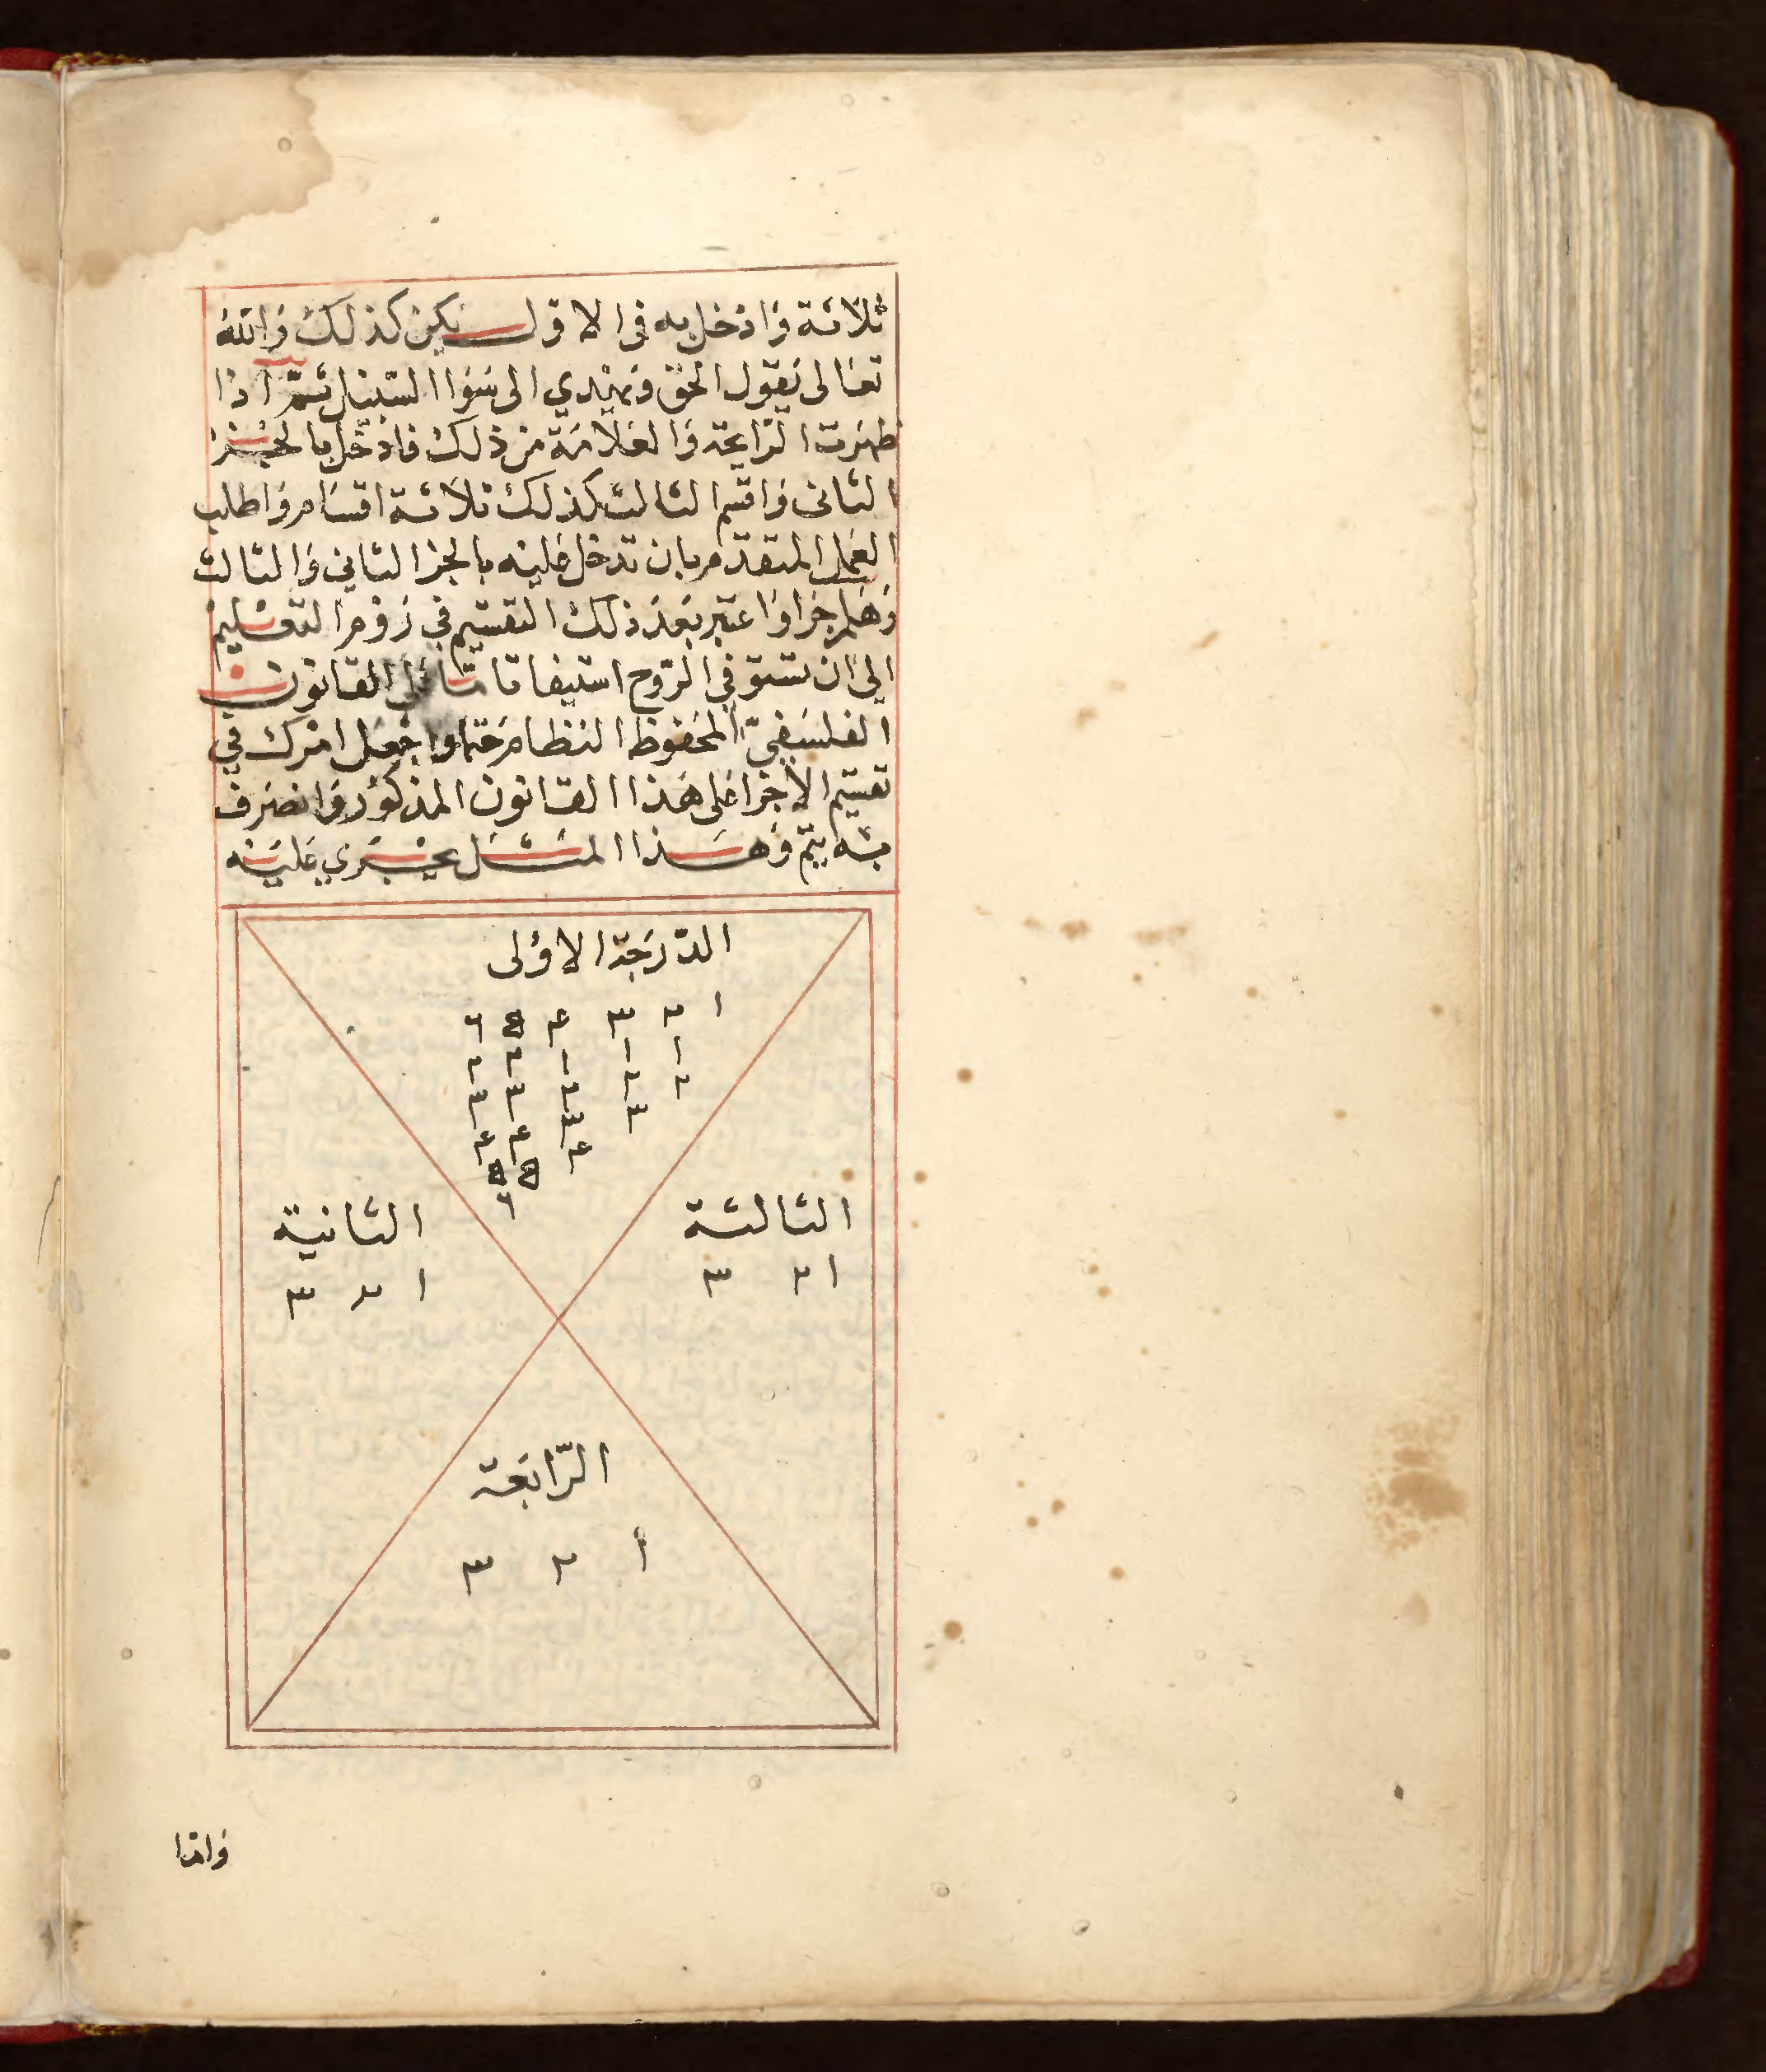 ثلاثة وادخل به في الاول يكن كذلك والله
تعالى يقول الحق ويهدي الى سوا السبيل ثم اذا
ظهرت الرايحة والعلامة من ذلك فادخل بالجز
الثاني واقسم الثالث كذلك ثلاثة اقسام واطلب
العمل المتقدم بان تدخل عليه بالجز الثاني والثالث
وهلم جرا واعتبر بعد ذلك التقسيم في التعليم
الى ان تستوفي الروح استيفا تاما على القانون
الفلسفي المحفوظ النظام حتما واجعل امرك في
تقسيم الاجزا على هذا القانون المذكور وانصرف
به يتم وهذا المثل يجري عليه
الدرجة الاولى
١ ٢ ٣ ٤ ٥ ٦
١ ١ ١ ٢ ٢
٢ ٢ ٢ ٣ ٣
٣ ٣ ٤ ٤
٤ ٥ ٥
٦
الثالثة
١ ٢ ٣
الثانية
١ ٢ ٣
الرابعة
١ ٢ ٣
واما